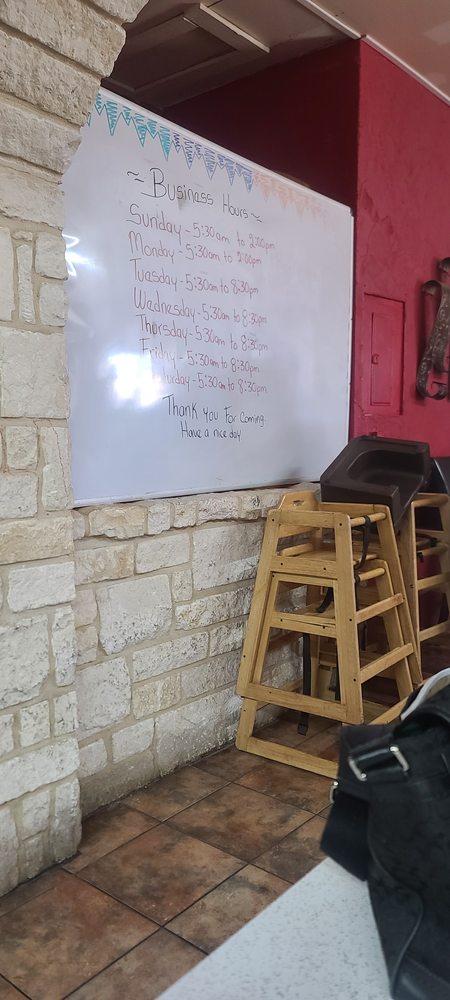 ~Business Hours~
Sunday - 5:30am to 2:00pm
Monday - 5:30am to 2:00pm
Tuesday - 5:30am to 8:30pm
Wednesday - 5:30am to 8:30pm
Thursday - 5:30am to 8:30pm
Friday - 5:30am to 8:30pm
Saturday - 5:30am to 8:30pm
Thank you For coming.
Have a nice day